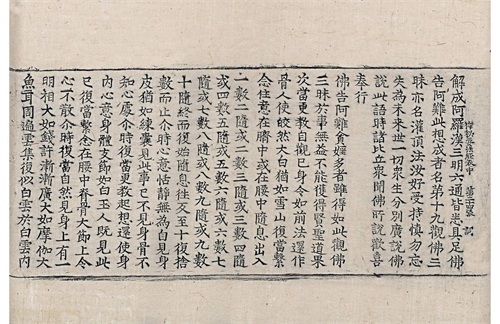 解成阿羅漢三明六通皆悉具足佛
告阿難此想成者名第十九觀佛三
昧亦名灌頂法汝好受持慎勿忘
失為未來世一切衆生分別廣說佛
說此語時諸比丘衆聞佛所說歡喜
奉行
佛告阿難貪婬多者雖得如此觀佛
三昧於事無益不能獲得賢聖道果
次當更教自觀己身令如前法還作
骨人使皎然大白猶如雪山復當繫
念住意在臍中或在腰中隨息出入
一數二隨或二數三隨或三數四隨
或四數五隨或五數六隨或六數七
隨或七數八隨或八數九隨或九數
十隨終而復始隨息往反至十復捨
數而止爾時心意恬靜無為自見身
皮猶如練囊見此事已不見身骨不
知心處爾時復當更教起想還使身
內心意身體支節如白玉人既見此
已復當繫念在腰中脊骨大節上令
心不散爾時復當自然見身上有一
明相大如錢許漸漸廣大如摩伽大
魚耳周遍雲集復似白雲於白雲內